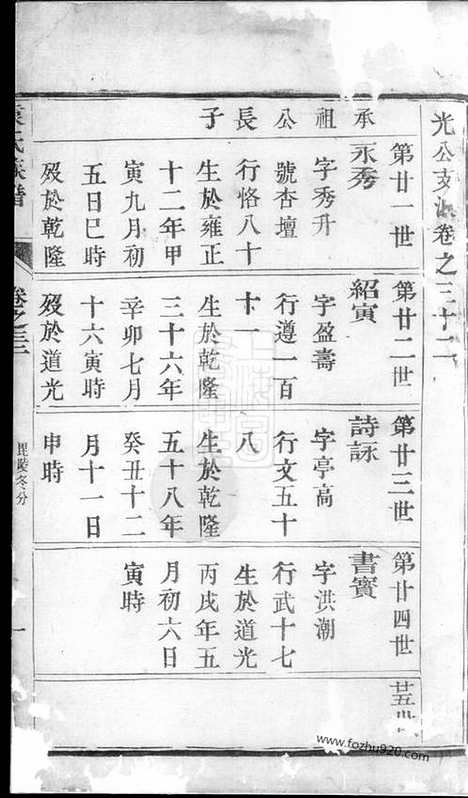 光公支 卷之三十二
第廿一世
承祖公長子
永秀
字秀升
號杏壇
行恪八十
生於雍正
十二年甲
寅九月初
五日巳時
殁於乾隆
第廿二世
紹寅
字盈壽
行遵一百
十一
生於乾隆
三十六年
辛卯七月
十六寅時
殁於道光
第廿三世
詩詠
字亭高
行文五十
八
生於乾隆
五十八年
癸丑十二
月十一日
申時
第廿四世
書寶
字洪潮
行武十七
生於道光
丙戌年五
月初六日
寅時
氏族譜
卷之三
毘陵冬分
一
www.fozhu920.com